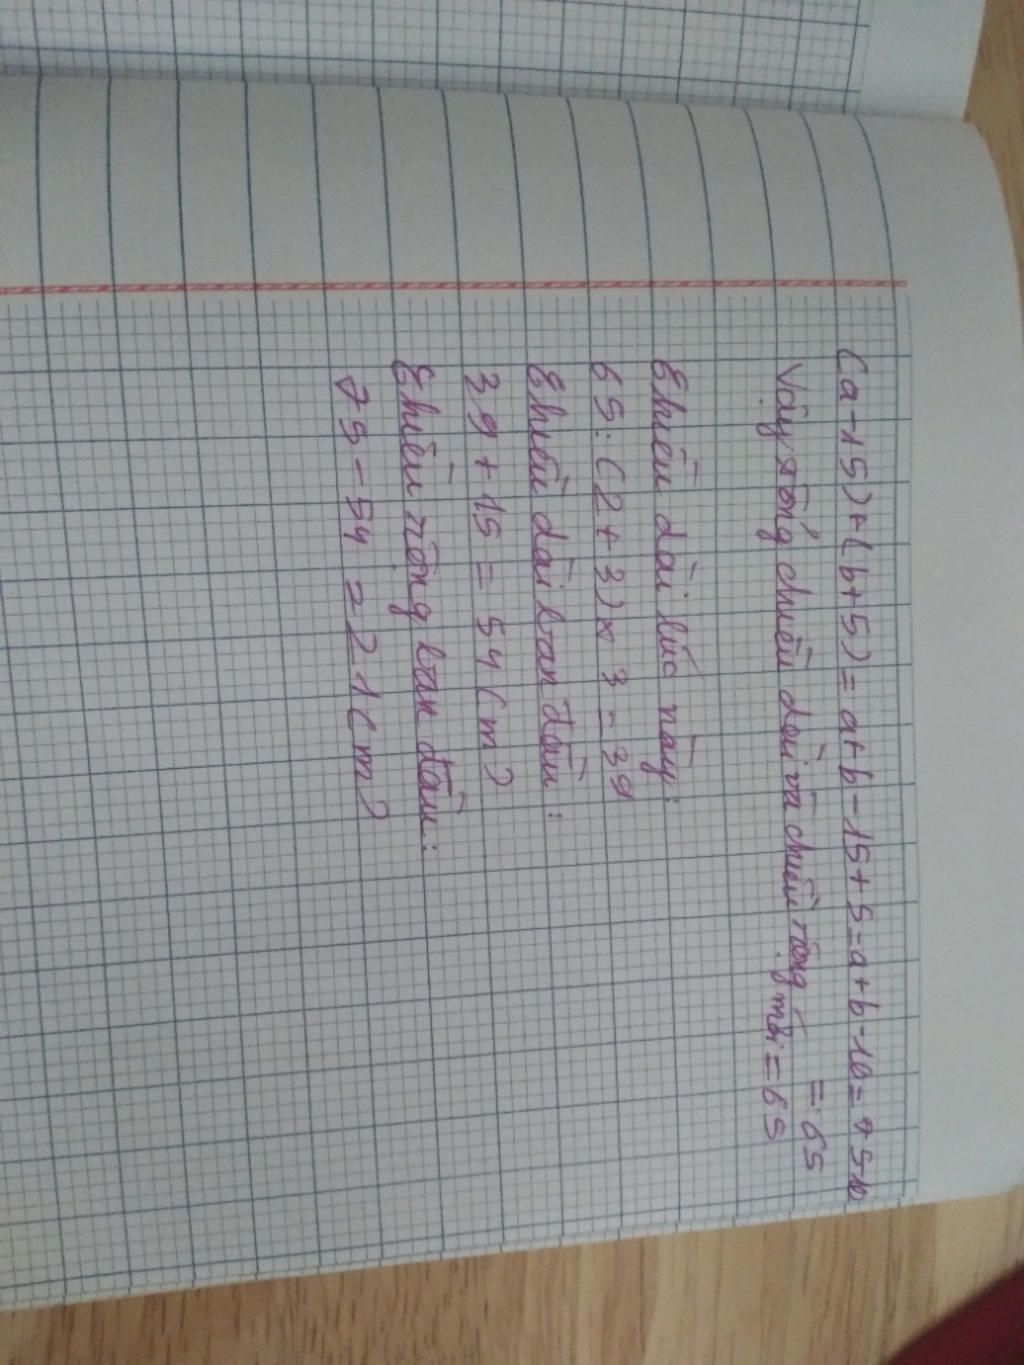 (a-15)+(b+5)=a+b-15+5=a+b-10=75-10
=65
Vậy tổng chiều dài và chiều rộng mới = 65
Chiều dài lúc này:
65:(2+3)x 3=39
Chiều dài ban đầu:
39+15=54(m)
Chiều rộng ban đầu:
75-54=21(m)